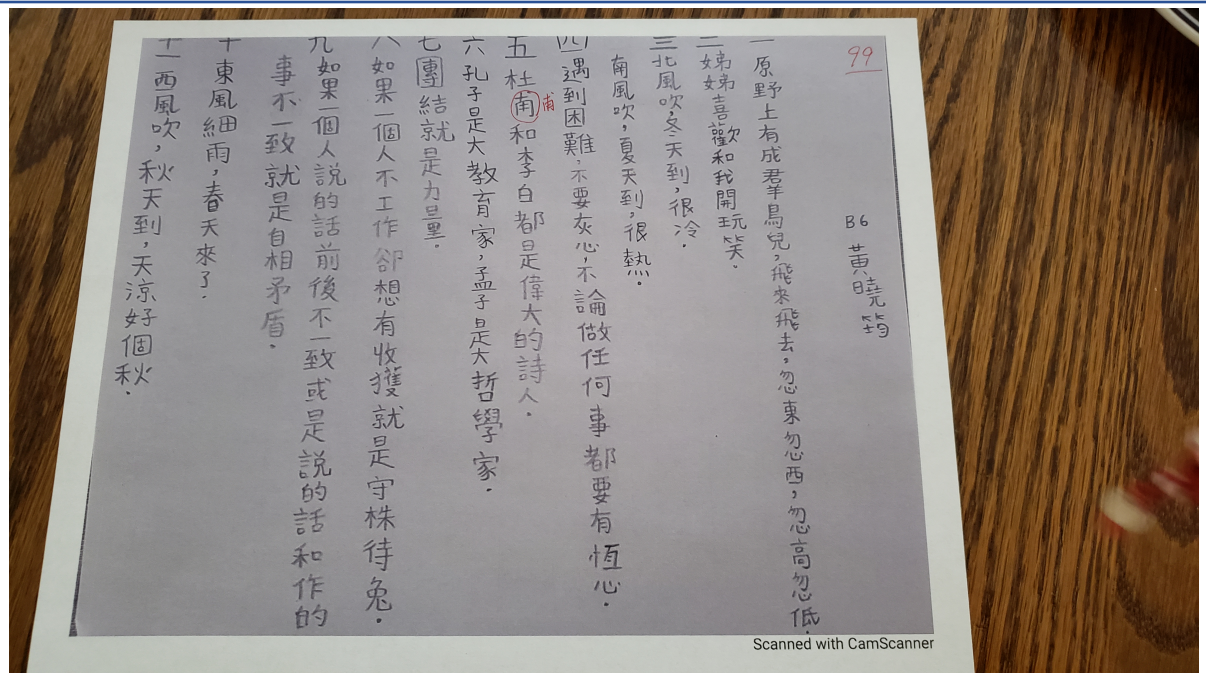 99
B6 黃曉筠
一 原野上有成群鳥兒,飛來飛去,忽東忽西,忽高忽低.
二 娣娣喜歡和我開玩笑.
三 北風吹,冬天到,很冷.
南風吹,夏天到,很熱.
四 遇到困難,不要灰心,不論做任何事都要有恆心.
五 杜甫和李白都是偉大的詩人.
甫
六 孔子是大教育家,孟子是大哲學家.
七 團結就是力量.
八 如果一個人不工作卻想有收獲就是守株待兔.
九 如果一個人說的話前後不一致或是說的話和作的
事不一致就是自相矛盾.
十 東風細雨,春天來了.
十一 西風吹,秋天到,天涼好個秋.
Scanned with CamScanner